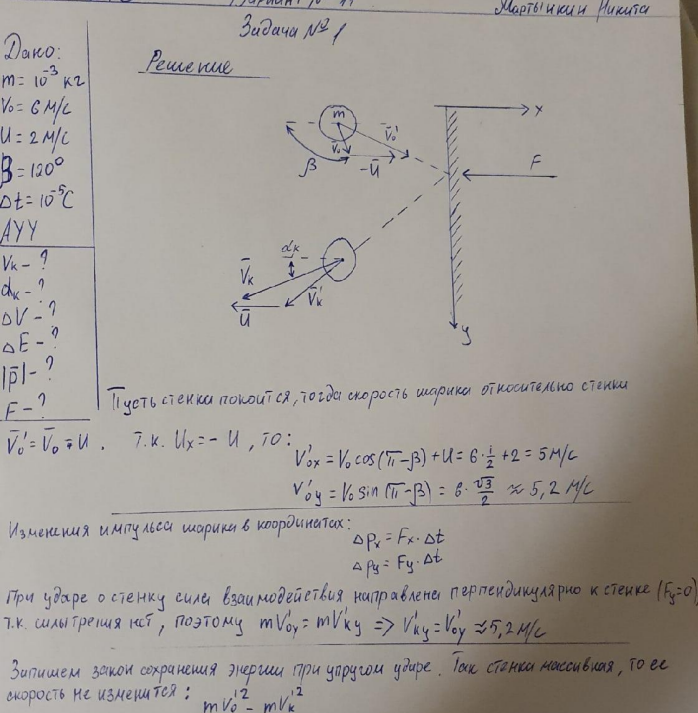 Вариант № 11
Мартынкин Никита
Задача № 1
Дано:
m = 10⁻³ кг
V₀ = 6 м/с
U = 2 м/с
β = 120°
Δt = 10⁻⁵ с
АУУ
Vк - ?
αк - ?
ΔV - ?
ΔE - ?
|p̄| - ?
F - ?
Решение
m
V̄₀'
V̄₀
-Ū
β
x
F
αк
V̄к
V̄к'
Ū
y
Пусть стенка покоится, тогда скорость шарика относительно стенки
V̄₀' = V̄₀ - Ū . Т.к. Uₓ = - U, то:
V'₀ₓ = V₀ cos(π-β) + U = 6 · 1/2 + 2 = 5 м/с
V'₀y = V₀ sin(π-β) = 6 · √3/2 ≈ 5,2 м/с
Изменения импульса шарика в координатах:
Δpₓ = Fₓ · Δt
Δpy = Fy · Δt
При ударе о стенку сила взаимодействия направлена перпендикулярно к стенке (Fy=0)
т.к. силы трения нет, поэтому mV'₀y = mV'кy => V'кy = V'₀y ≈ 5,2 м/с
Запишем закон сохранения энергии при упругом ударе. Так стенка массивная, то ее
скорость не изменится:
mV₀'² = mVк'²